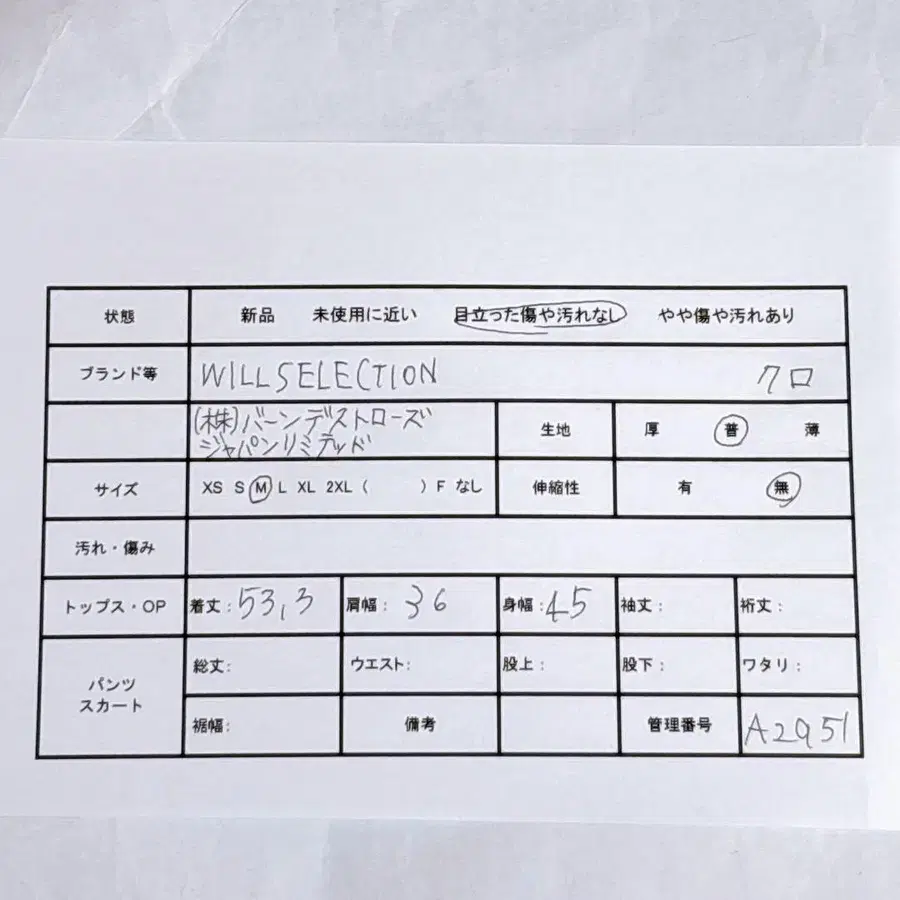 状態 新品 未使用に近い 目立った傷や汚れなし やや傷や汚れあり
ブランド等 WILLSELECTION クロ
(株)バーンデストローズ
ジャパンリミテッド
生地 厚 普 薄
サイズ XS S M L XL 2XL ( ) F なし 伸縮性 有 無
汚れ・傷み
トップス・OP 着丈: 53,3 肩幅: 36 身幅: 45 袖丈: 裄丈:
パンツ
スカート
総丈: ウエスト: 股上: 股下: ワタリ:
裾幅: 備考 管理番号 A2951